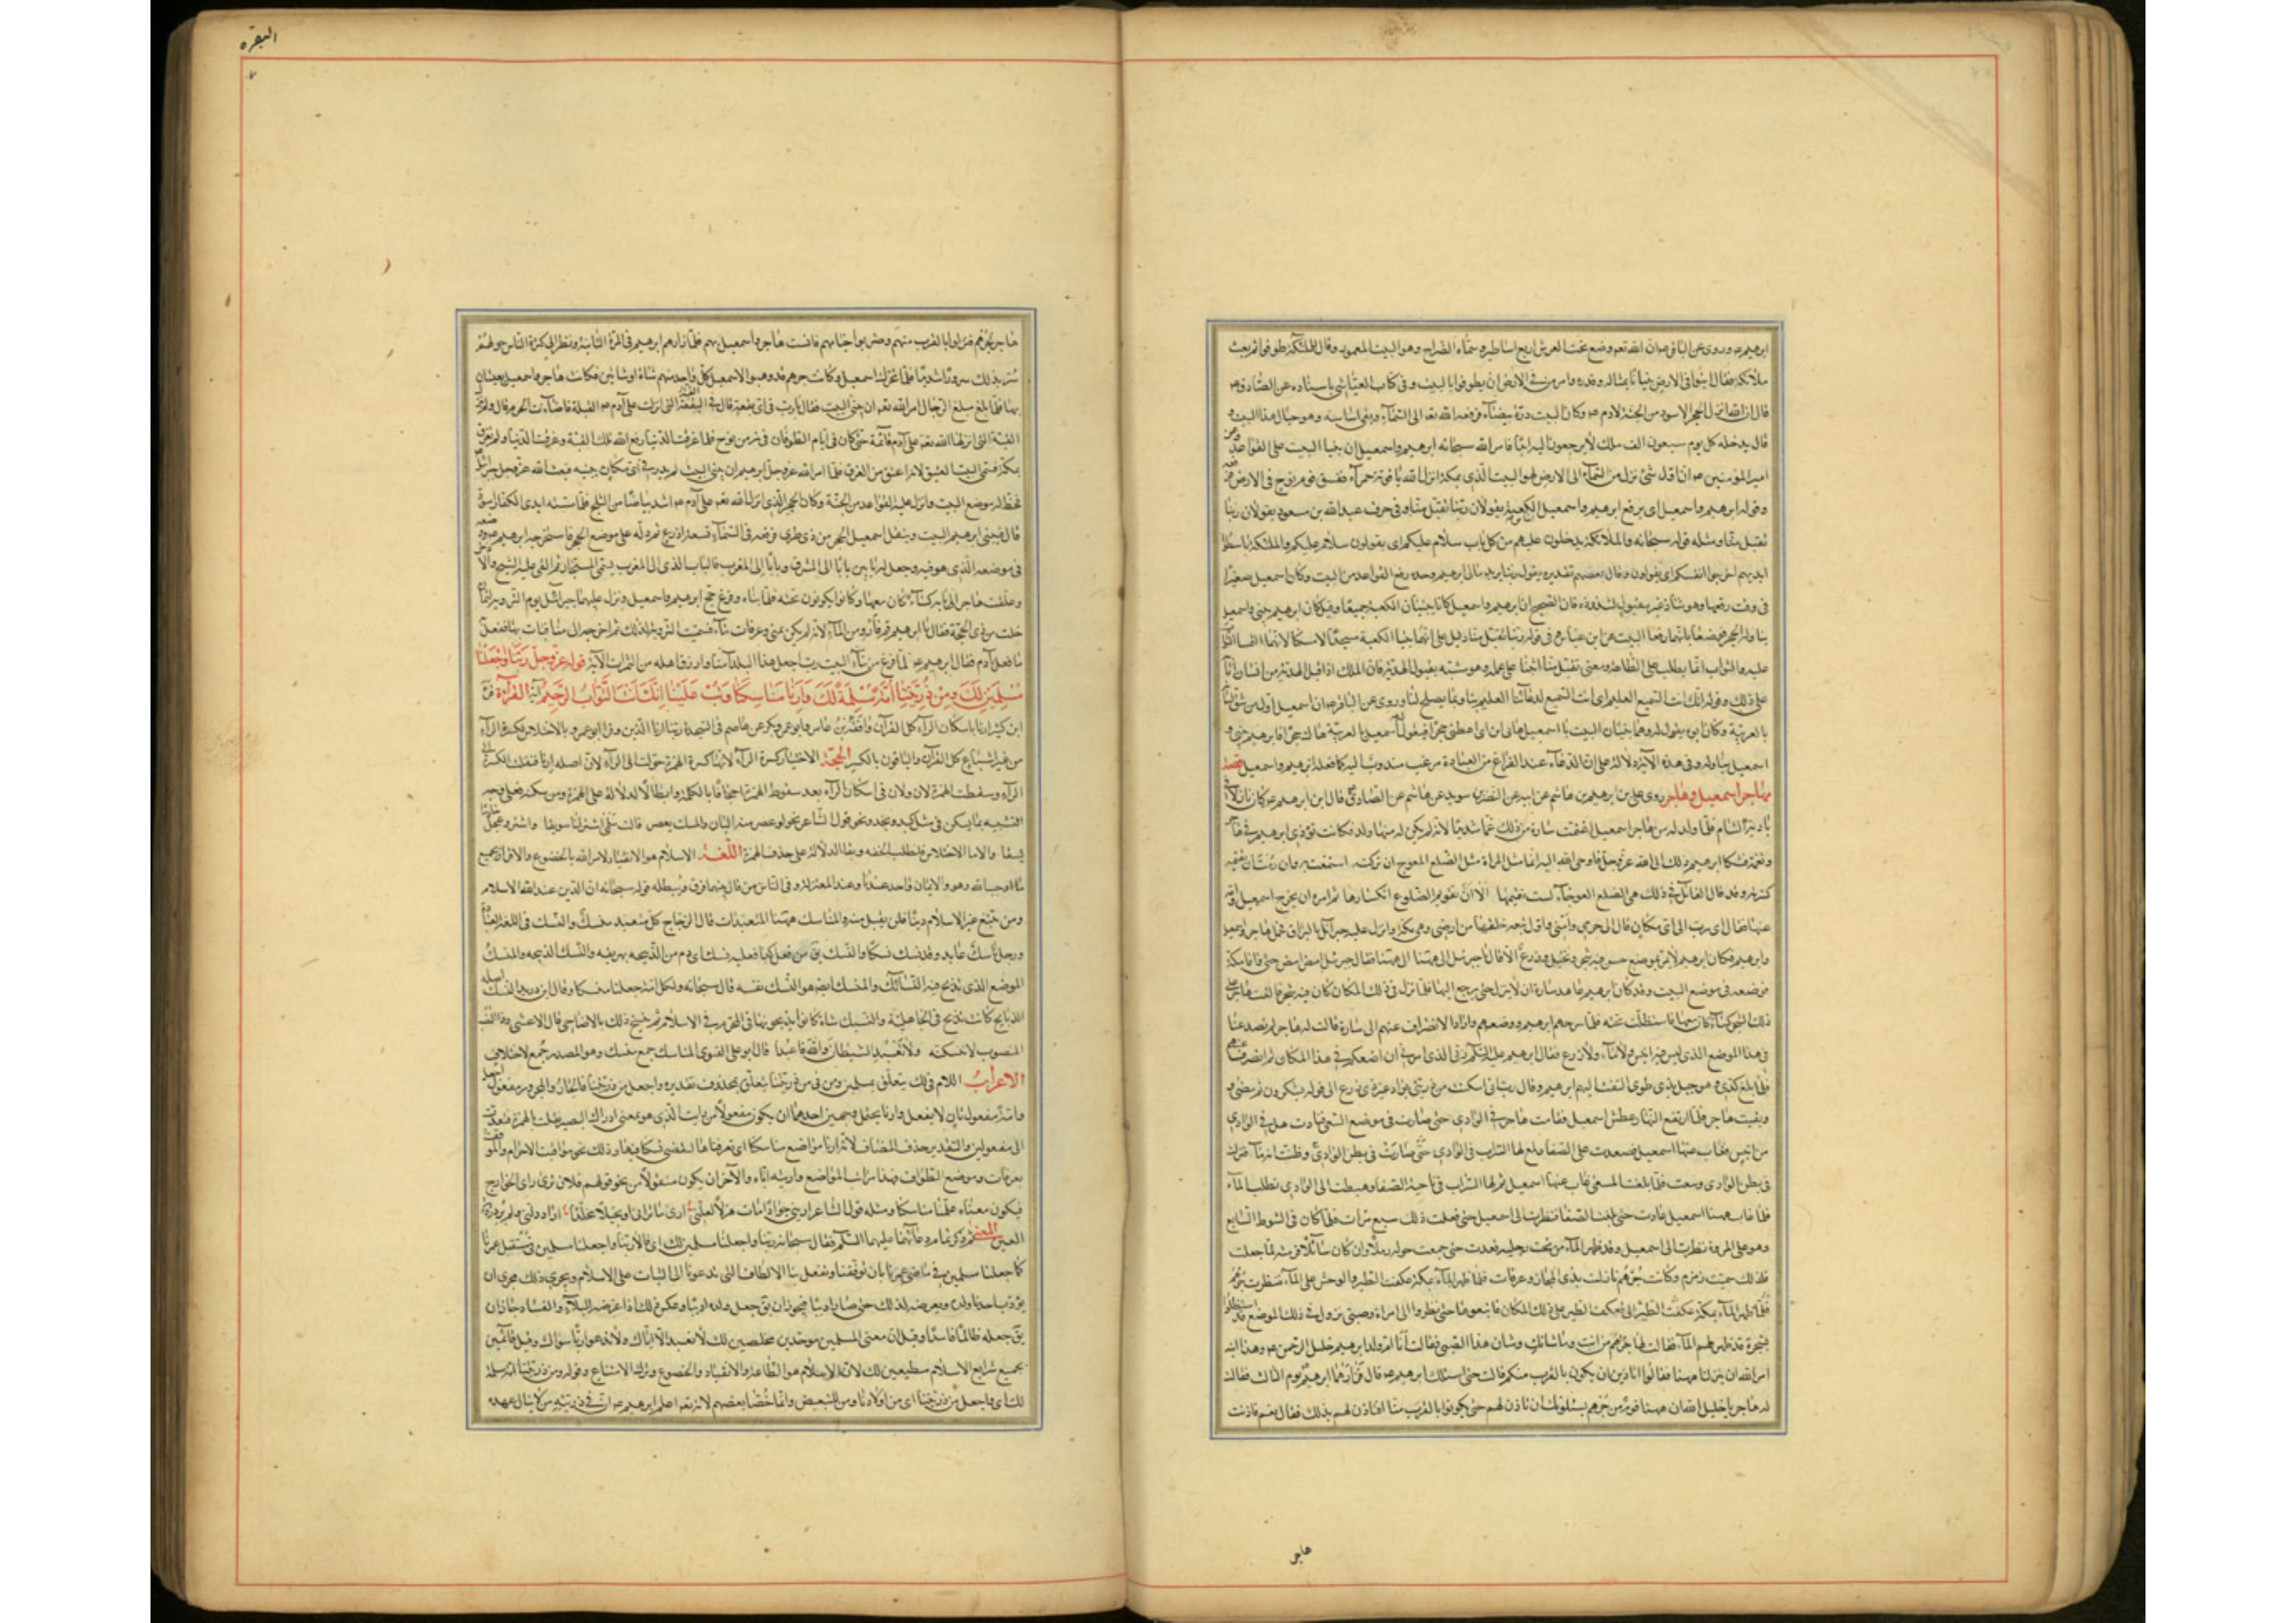 ابرهيم ع وروى عن الباقر ع ان الله تعم وضع تحت العرش اربع اساطين وسماه الضراح وهو البيت المعمور وقال للملئكة طوفوا به ثم بعث
ملائكة فقال ابنوا في الارض بيتا بمثاله وقدره وامر من في الارض ان يطوفوا بالبيت وفي كتاب العياشي باسناده عن الصادق ع
قال ان الله انزل الحجر الاسود من الجنة لادم ع وكان البيت درة بيضاء فرفعه الله تعم الى السماء وبقى اساسه وهو حيال هذا البيت و
قال يدخله كل يوم سبعون الف ملك لا يرجعون اليه ابدا فامر الله سبحانه ابرهيم واسمعيل ان يبنيا البيت على القواعد وعن
امير المؤمنين ع ان اول شئ نزل من السماء الى الارض لهو البيت الذي بمكة انزله الله ياقوتة حمراء ففسق قوم نوح في الارض فرفعه
وقوله ابرهيم واسمعيل اى يرفع ابرهيم واسمعيل الكعبة يقولان ربنا تقبل منا وفي حرف عبد الله بن مسعود يقولان ربنا
تقبل منا ومثله قوله سبحانه والملائكة يدخلون عليهم من كل باب سلام عليكم اى يقولون سلام عليكم والملئكة باسطوا
ايديهم اخرجوا انفسكم اى يقولون وقال بعضهم تقديره يقول ربنا برده الى ابرهيم وحده رفع القواعد من البيت وكان اسمعيل صغيرا
في وقت رفعها وهو شاذ غير مقبول لشذوذه فان الصحيح ان ابرهيم واسمعيل كانا يبنيان الكعبة جميعا وقيل كان ابرهيم يبنى واسمعيل
يناوله الحجر فيضعها باتهما رفعا البيت عن ابن عباس وفي قوله ربنا تقبل منا دليل على انهما بنيا الكعبة مسجدا لا مسكنا لانهما التمسا الثواب
عليه والثواب انما يطلب على الطاعة ومعنى تقبل منا اثبنا على عمله وهو مشبه بقبول الهدية فان الملك اذا قبل الهدية من انسان اثابه
على ذلك وقوله انك انت السميع العليم اى انت السميع لدعائنا العليم بنا وبما يصلح لنا وروى عن الباقر ع ان اسمعيل اول من شق لسانه
بالعربية وكان ابوه يقول له وهما يبنيان البيت يا اسمعيل هابى ابن اى اعطنى حجرا فيقول له اسمعيل بالعربية هاك حجرا فابرهيم يبنى و
اسمعيل يناوله وفي هذه الآية دلالة على ان الدعاء عند الفراغ من العبادة مرغب مندوب اليه كما فعله ابرهيم واسمعيل قصة
مهاجر اسمعيل وهاجر روى على بن ابرهيم بن هاشم عن ابيه عن النضر بن سويد عن هاشم عن الصادق قال ان ابرهيم ع كان نازلا في
بادية الشام فلما ولد له من هاجر اسمعيل اغتمت سارة من ذلك غما شديدا لانه لم يكن له منها ولد فكانت تؤذى ابرهيم في هاجر
وتغمه فشكا ابرهيم ذلك الى الله عز وجل فاوحى الله اليه انما مثل المراة مثل الضلع المعوج ان تركته استمتعت به وان رمت ان تقيمه
كسرته وقد قال القائل في ذلك هي الضلع العوجاء لست تقيمها الا ان تقويم الضلوع انكسارها ثم امره ان يخرج اسمعيل وامه
عنها فقال اى رب الى اى مكان قال الى حرمى وامنى واول بقعة خلقتها من ارضى وهي مكة وانزل عليه جبرائيل بالبراق فحمل هاجر واسمعيل
وابرهيم فكان ابرهيم لا يمر بموضع حسن فيه شجر ونخل وزرع الا قال يا جبرئيل الى ههنا الى ههنا فقال جبرئيل امض امض حتى وافا مكة
فوضعه في موضع البيت وقد كان ابرهيم عاهد سارة ان لا ينزل حتى يرجع اليها فلما نزلوا في ذلك المكان كان فيه شجر فالقت هاجر على
ذلك الشجر كساء كان معها فاستظلت تحته فلما سرحهم ابرهيم ووضعهم واراد الانصراف عنهم الى سارة قالت له هاجر لم تدعنا
في هذا الموضع الذي ليس فيه انيس ولا ماء ولا زرع فقال ابرهيم عليه السلم ربى الذي امرنى ان اضعكم في هذا المكان ثم انصرف عنهم
فلما بلغ كدى وهو جبل بذى طوى التفت اليهم ابرهيم وقال ربنا انى اسكنت من ذريتى بواد غير ذى زرع الى قوله يشكرون ثم مضى و
وبقيت هاجر فلما ارتفع النهار عطش اسمعيل فقامت هاجر في الوادى حتى صارت في موضع السعى فنادت هل في الوادى
من انيس فغاب عنها اسمعيل فصعدت على الصفا ولمع لها السراب في الوادى حتى صارت في بطن الوادى وظنت انه ماء فنزلت
في بطن الوادى وسعت فلما بلغت المسعى غاب عنها اسمعيل ثم لها السراب في ناحية الصفا وهبطت الى الوادى تطلب الماء
فلما غاب عنها اسمعيل عادت حتى بلغت الصفا فنظرت الى اسمعيل حتى فعلت ذلك سبع مرات فلما كان في الشوط السابع
وهو على المروة نظرت الى اسمعيل وقد ظهر الماء من تحت رجليه فعدت حتى جمعت حوله رملا وانه كان سائلا فزمته بما جعلت
فلذلك سميت زمزم وكانت جرهم نازلت بذى المجاز وعرفات فلما ظهر الماء بمكة عكفت الطير والوحش على الماء فنظرت جرهم
فلما ظهر الماء بمكة عكفت الطير الى تعكف الطير على ذلك المكان فاتبعوها حتى نظروا الى امراة وصبي نزول في ذلك الموضع قد استظلوا
بشجرة قد ظهر لهم الماء فقال لها جرهم من انت وما شانك وشان هذا الصبى فقالت انا ام ولد ابرهيم خليل الرحمن ع وهذا ابنه
امره الله ان ينزلنا ههنا فقالوا اتاذنين ان نكون بالقرب منكم فقالت حتى اسئل ابرهيم ع قال فزارهما ابرهيم يوم الثالث فقالت
له هاجر يا خليل الله ان ههنا قوم من جرهم يسئلونك ان تاذن لهم حتى يكونوا بالقرب منا افتاذن لهم بذلك فقال نعم فاذنت
هاجر
البقرة
هاجر لجرهم فنزلوا بالقرب منهم وضربوا خيامهم فانست هاجر واسمعيل بهم فلما زارهم ابرهيم في المرة الثانية ونظر الى كثرة الناس حولهم
سر بذلك سرورا شديدا فلما تحرك اسمعيل وكانت جرهم قد وهبوا لاسمعيل كل واحد منهم شاة او شاتين فكانت هاجر واسمعيل يعيشان
بها فلما بلغ مبلغ الرجال امر الله تعم ان يبنى البيت فقال يا رب في اى بقعة قال في البقعة التى انزلت على آدم ع القبة فاضاءت الحرم قال ولم تزل
القبة التى انزلها الله تعم على آدم قائمة حتى كان في ايام الطوفان في زمن نوح فلما غرقت الدنيا رفع الله تلك القبة وغرقت الدنيا ولم تغرق
بمكة فسمى البيت العتيق لانه اعتق من الغرق فلما امر الله عز وجل ابرهيم ان يبنى البيت لم يدر في اى مكان يبنيه فبعث الله عز وجل جبرائيل
فخط له موضع البيت وانزل عليه القواعد من الجنة وكان الحجر الذي انزله الله تعم على آدم ع اشد بياضا من الثلج فلما مسته ايدى الكفار اسود
قال فبنى ابرهيم البيت ونقل اسمعيل الحجر من ذى طوى فرفعه في السماء تسعة اذرع ثم دله على موضع الحجر فاستخرجه ابرهيم ع ووضعه
في موضعه الذي هو فيه وجعل له بابين بابا الى المشرق وبابا الى المغرب فالباب الذي الى المغرب يسمى المستجار ثم القى عليه الشيح والاذخر
وعلقت هاجر على بابه كساء كان معها وكانوا يكونون تحته فلما بناه وفرغ حج ابرهيم واسمعيل ونزل عليهما جبرائيل يوم التروية لثمان
خلت من ذى الحجة فقال يا ابرهيم قم فارتو من الماء لانه لم يكن بمنى وعرفات ماء فسميت التروية لذلك ثم اخرجه الى منى فبات بها ففعل
ما فعل آدم فقال ابرهيم ع لما فرغ من بناء البيت رب اجعل هذا البلد آمنا وارزق اهله من الثمرات الآية قوله عز وجل ربنا واجعلنا
مسلمين لك ومن ذريتنا امة مسلمة لك وارنا مناسكنا وتب علينا انك انت التواب الرحيم آية القراءة قرا
ابن كثير ارنا باسكان الراء كل القرآن وافقه ابن عامر وابو بكر عن عاصم في السجدة ربنا ارنا الذين وقرا ابو عمرو بالاختلاس لكسرة الراء
من غير اشباع كل القرآن والباقون بالكسر الحجة الاختيار كسرة الراء لانها كسرة الهمزة حولت الى الراء لان اصله ارئنا فنقلت الكسرة الى
الراء وسقطت الهمزة لان ولان في اسكان الراء بعد سقوط الهمزة اجحافا بالكلمة وابطالا للدلالة على الهمزة ومن سكنه فعلى وجه
التشبيه بما يسكن في مثل كبد وفخذ ونحو قول الشاعر نحو لو عصر منه البان والمسك انعصر قالت سليمى اشتر لنا سويقا واشتر وعجل خادما
لبيقا واما الاختلاس فلطلب الخفة وبقاء الدلالة على حذف الهمزة اللغة الاسلام هو الانقياد لامر الله بالخضوع والاقرار بجميع
ما اوجب الله وهو والايمان واحد عندنا وعند المعتزلة وفي الناس من قال بينهما فرق ويبطله قوله سبحانه ان الدين عند الله الاسلام
ومن يبتغ غير الاسلام دينا فلن يقبل منه والمناسك ههنا المتعبدات قال الزجاج كل متعبد منسك والنسك في اللغة العبادة
ورجل ناسك عابد وقد نسك نسكا والنسك يق من فعل كذا فعليه نسك اى دم من الذبيحة يهريقه والنسك الذبيحة والمنسك
الموضع الذي تذبح فيه النسائك والمنسك ايضا هو النسك نفسه قال سبحانه ولكل امة جعلنا منسكا وقال ابن دريد النسك اصله
الذبايح كانت تذبح في الجاهلية والنسيكة شاة كانوا يذبحونها في المحرم في الاسلام ثم نسخ ذلك بالاضاحى قال الاعشى وذا النصب
المنصوب لا تنسكنه ولا تعبد الشيطان والله فاعبدا قال ابو على الفسوى المناسك جمع منسك وهو المصدر جمع لاختلاف
الاعراب اللام في لك يتعلق بمسلمين ومن في من ذريتنا يتعلق بمحذوف تقديره واجعل من ذريتنا فالجار والمجرور مفعول اجعل
وامة مفعول ثان لاجعل وارنا يحتمل وجهين احدهما ان يكون منقولا من رايت الذي هو بمعنى ادراك البصر نقلت بالهمزة فتعدت
الى مفعولين والتقدير حذف المضاف كانه ارنا مواضع مناسكنا اى عرفناها لنقضى نسكنا فيها وذلك نحو مواقيت الاحرام والموقف
بعرفات وموضع الطواف وهذا من رايت المواضع واريته اياه والآخر ان يكون منقولا من نحو قولهم فلان يرى راى الخوارج
فيكون معناه علمنا مناسكنا ومثله قول الشاعر ارينى جوادا مات هزلا لعلنى ارى ما ترين او بخيلا مخلدا اراد دلينى ولم يرد رؤية
العين المعنى ثم ذكر تمام دعائهما عليهما السلم فقال سبحانه ربنا واجعلنا مسلمين لك اى قالا ربنا واجعلنا مسلمين في مستقبل عمرنا
كما جعلتنا مسلمين في ماضى عمرنا بان توفقنا وتفعل بنا الالطاف التى تدعونا الى الثبات على الاسلام ويجرى ذلك مجرى ان
يؤدب احدنا ولده ويعرضه لذلك حتى صار اديبا فيجوز ان يق جعل ولده اديبا وعكس ذلك اذا عرضه للبلاء والفساد جاز ان
يق جعله ظالما فاسدا وقيل ان معنى المسلمين موحدين مخلصين لك لا نعبد الا اياك ولا ندعو ربا سواك وقيل قائمين
بجميع شرايع الاسلام مطيعين لك لان الاسلام هو الطاعة والانقياد والخضوع وترك الامتناع وقوله ومن ذريتنا امة مسلمة
لك اى واجعل من ذريتنا اى من اولادنا ومن للتبعيض وانما خصا بعضهم لانه تعم اعلم ابرهيم ع ان في ذريته من لا ينال عهده